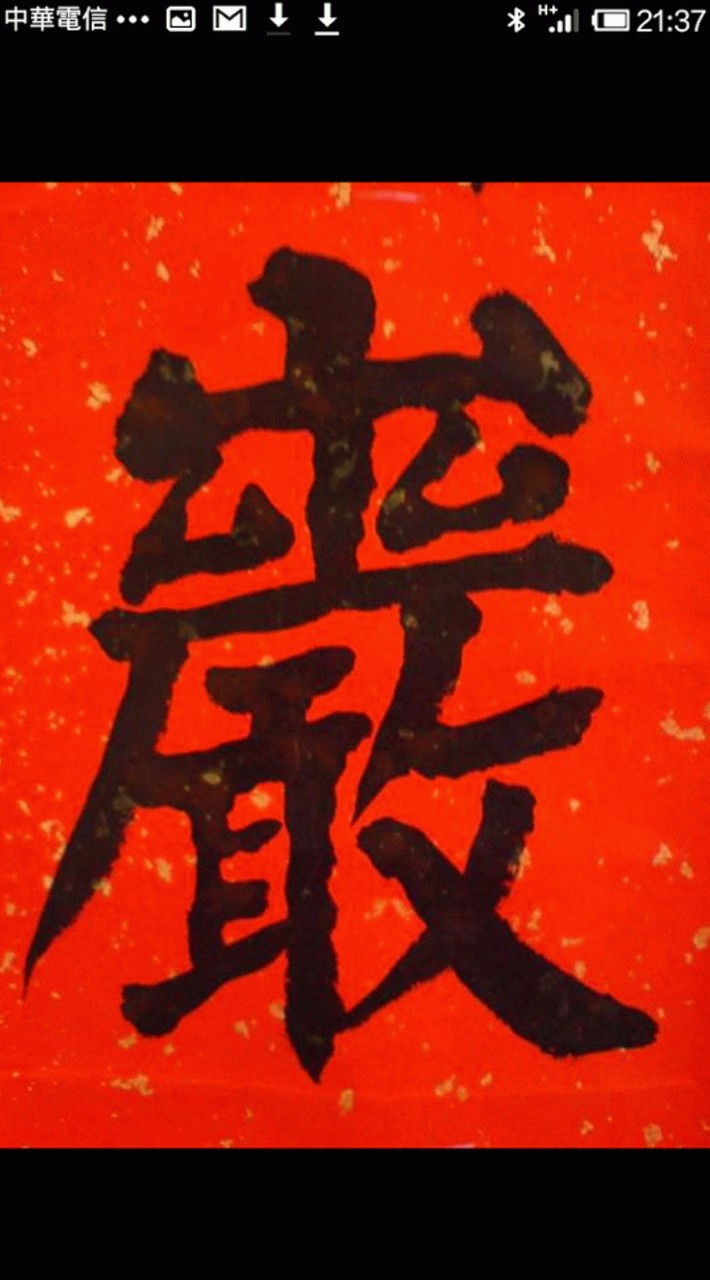 中華電信 ••• H+ 21:37
巖